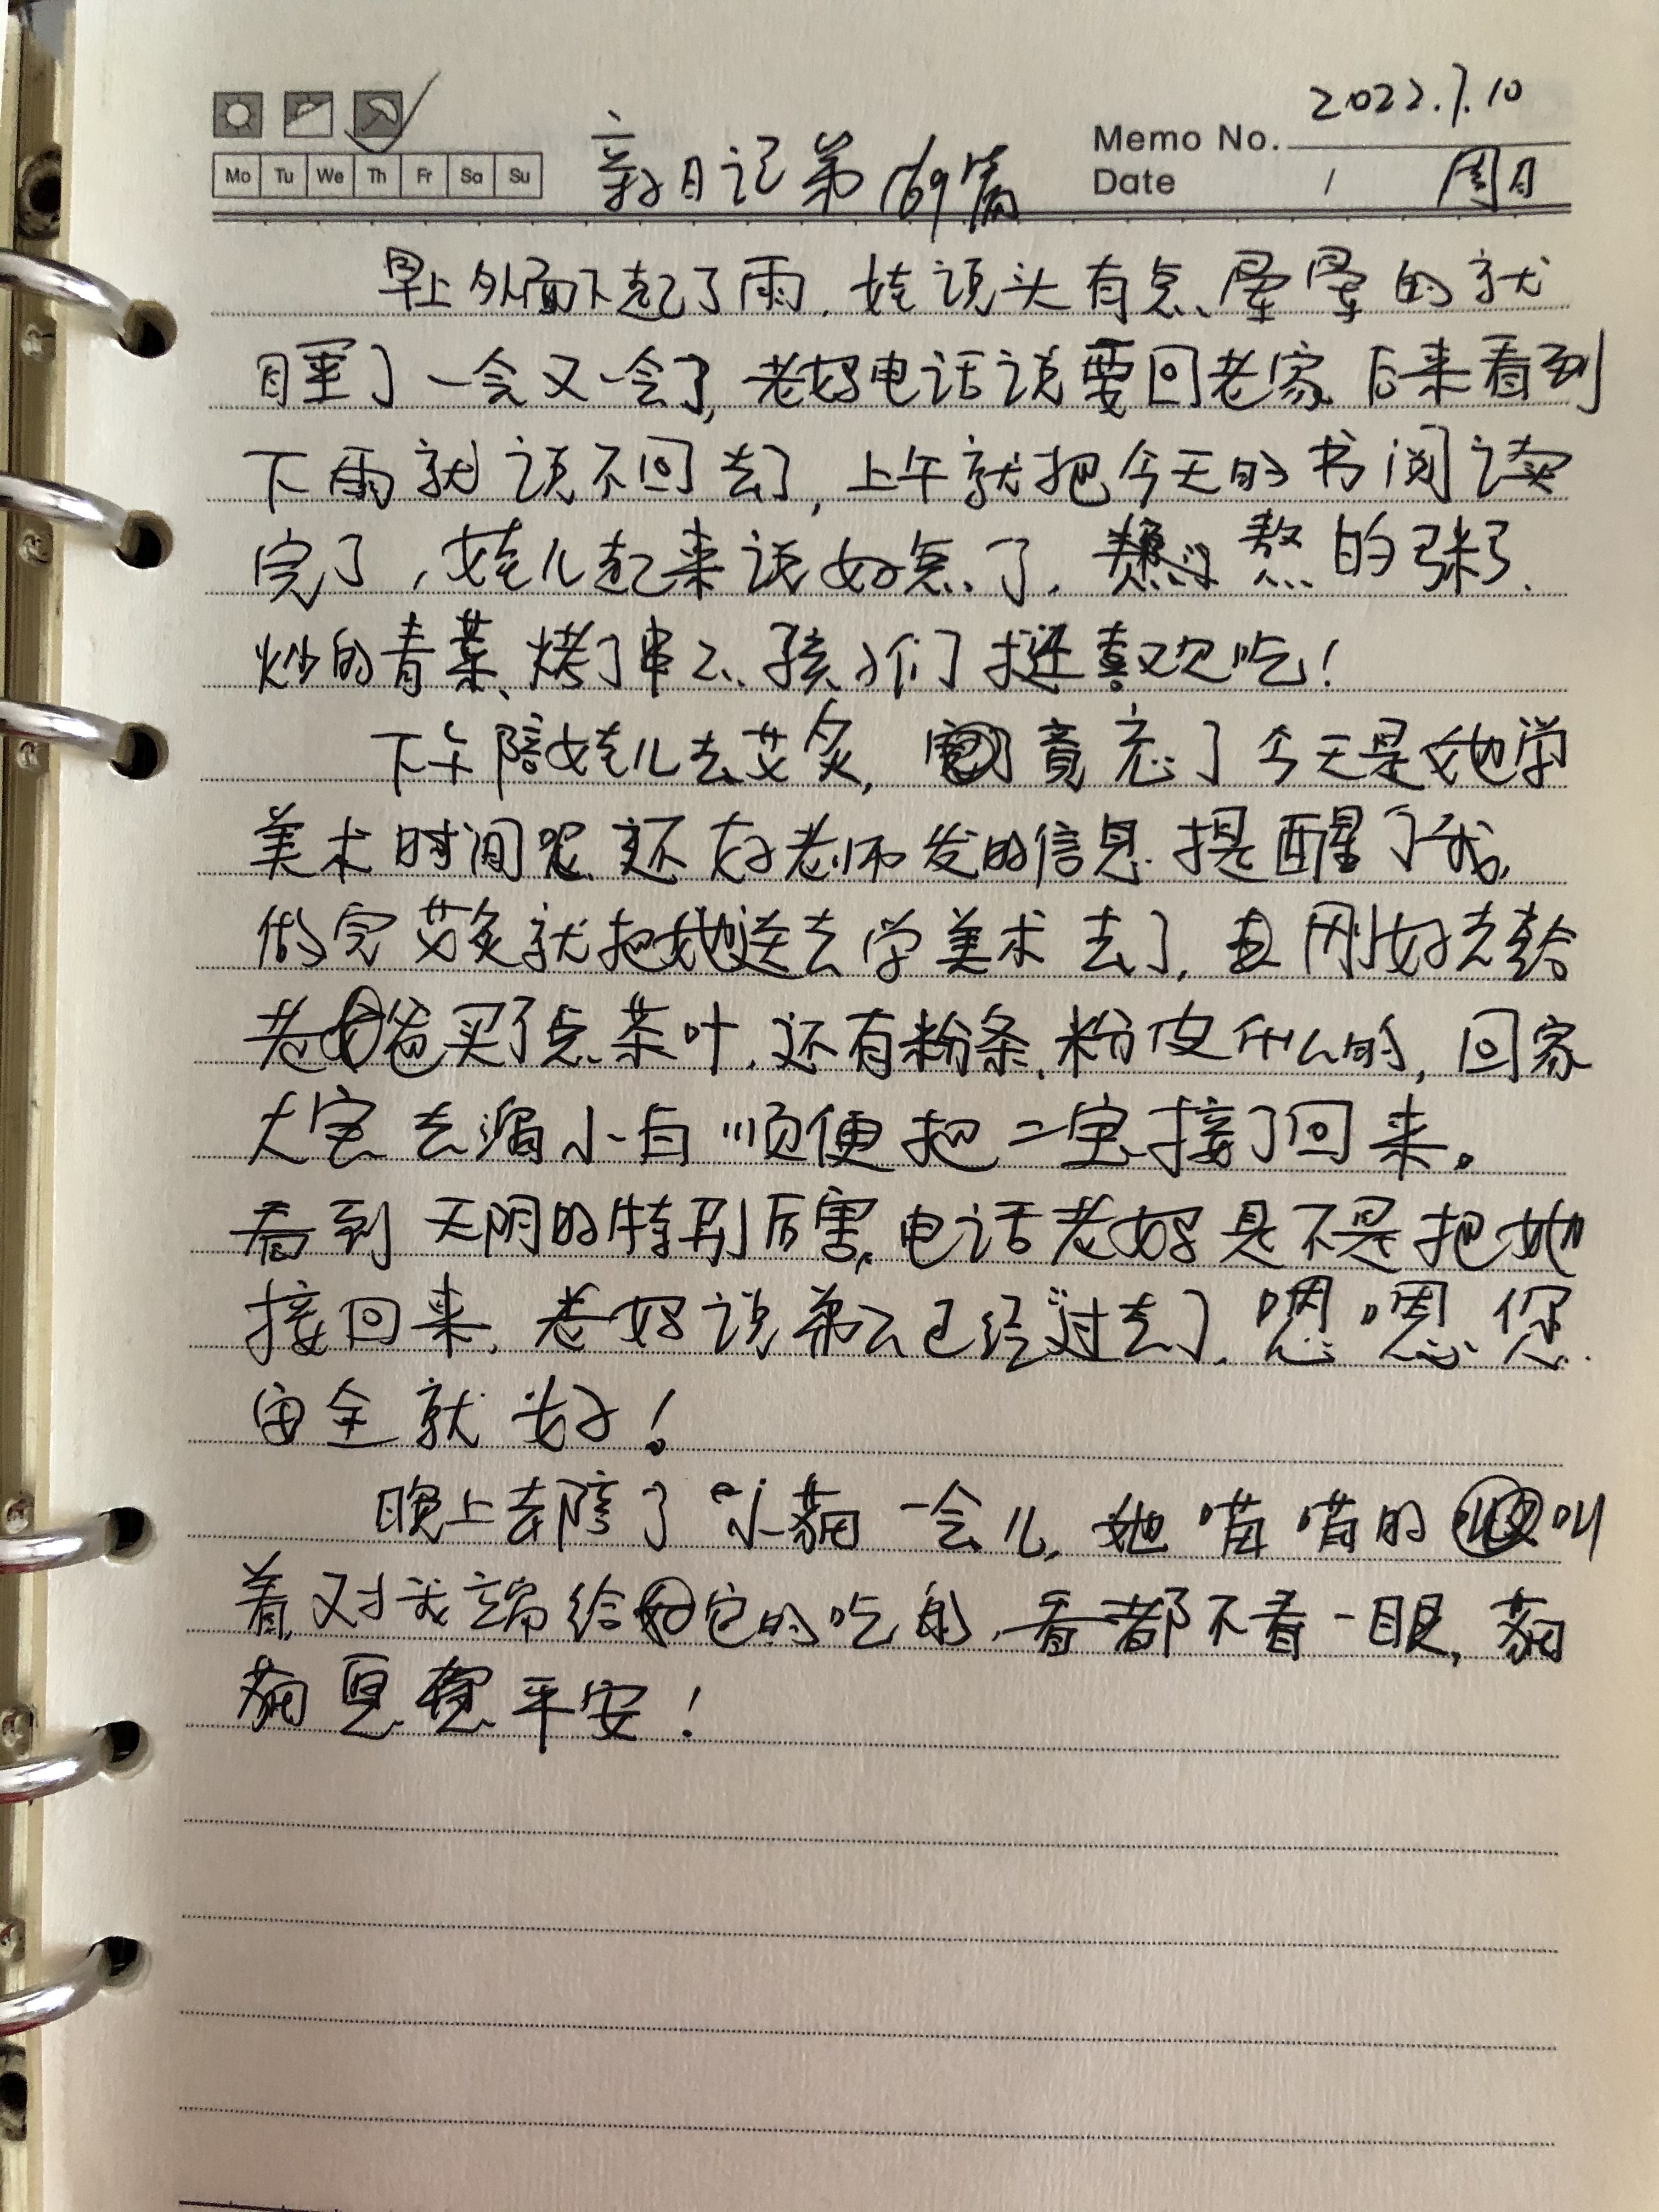 2022.7.10
Memo No.
Mo Tu We Th Fr Sa Su
亲子日记第169篇
Date / 周日
早上外面下起了雨,娃说头有点晕晕的就
睡了一会又一会了,老妈电话说要回老家,后来看到
下雨就说不回去了,上午就把今天的书阅读
完了,娃儿起来说好点了,熬的粥,
炒的青菜、烤了串串,孩子们挺喜欢吃!
下午陪娃儿去艾灸,竟忘了今天是她学
美术时间呢,还好老师发的信息提醒了我,
做完艾灸就把她送去学美术去了,刚好去给
老爸买了点茶叶,还有粉条,粉皮什么的,回家
大宝去溜小白顺便把二宝接了回来。
看到天阴的特别厉害,电话老妈是不是把她
接回来,老妈说弟弟已经过去了,嗯嗯,您
安全就好!
晚上去陪了小猫一会儿,她喵喵的叫
着,对我端给它的吃的,看都不看一眼,猫
猫,愿您平安!